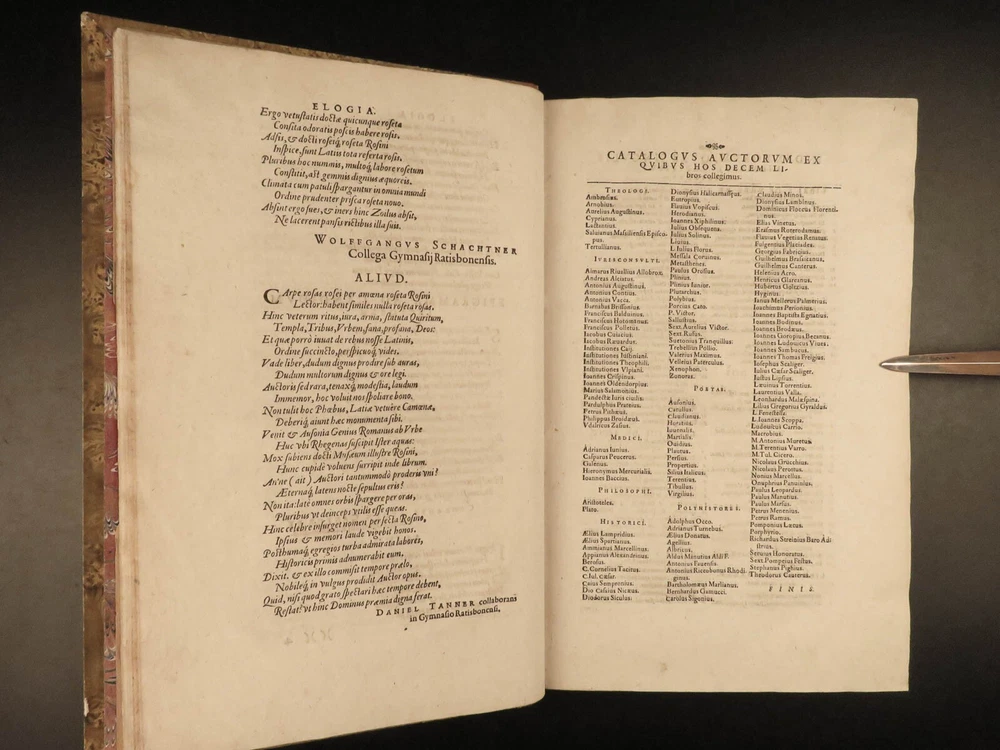 ELOGIA.
Ergo vetustatis doctæ quicunque roseta
Consita odoratis poscis habere rosis.
Adsis, & docti roseiq́; roseta Rosini
Inspice, sunt Latiis tota referta rosis.
Pluribus hoc nummis, multoq́; labore rosetum
Constitit, ast gemmis dignius æquoreis.
Climata cum patuli spargantur in omnia mundi
Ordine prudenter prisca roseta nouo.
Absint ergo sues, & iners hinc Zoilus absit,
Ne lacerent pansis rictibus illa suis.
WOLFFGANGVS SCHACHTNER
Collega Gymnasij Ratisbonensis.
ALIVD.
CArpe rosas rosei per amœna roseta Rosini
Lector: habent similes nulla roseta rosas.
Hinc veterum ritus, iura, arma, statuta Quiritum,
Templa, Tribus, Vrbem, fana, profana, Deos:
Et quæ porrò iuuat de rebus nosse Latinis,
Ordine succincto, perspicuoq́; vides.
Vade liber, dudum dignus prodire sub auras,
Dudum multorum dignus & ore legi.
Auctoris sed rara, tenaxq́; modestia, laudum
Immemor, hoc voluit nos spoliare bono.
Non tulit hoc Phœbus, Latiæ vetuêre Camœnæ,
Deberiq́; aiunt hæc monumenta sibi.
Venit & Ausonia Genius Romanus ab Vrbe
Huc vbi Rhegenas suscipit Ister aquas:
Mox subiens docti Musæum illustre Rosini,
Hunc cupidè voluens surripit inde librum.
An'ne (ait) Auctori tantummodò proderis vni?
Æternaq́; latens nocte sepultus eris?
Non ita: late omnes orbis spargere per oras,
Pluribus vt deinceps vtilis esse queas.
Hinc celebre insurget nomen per secla Rosino,
Ipsius & memori laude vigebit honos.
Posthumaq́; egregios turba admirata labores,
Historicis primis adnumerabit eum.
Dixit. & ex illo commisit tempore prælo,
Nobileq́; in vulgus prodidit Auctor opus.
Quid, nisi quod grato spectari hæc tempore debent,
Restat? vt hinc Dominus præmia digna ferat.
DANIEL TANNER collaborans
in Gymnasio Ratisbonensi.
CATALOGVS AVCTORVM EX
QVIBVS HOS DECEM LI-
bros collegimus.
THEOLOGI.
Ambrosius.
Arnobius.
Aurelius Augustinus.
Cyprianus.
Lactantius.
Saluianus Massiliensis Episco-
pus.
Tertullianus.
IVRISCONSVLTI.
Aimarus Riuallius Allobrox.
Andreas Alciatus.
Antonius Augustinus.
Antonius Contius.
Antonius Vacca.
Barnabas Brissonius.
Franciscus Balduinus.
Franciscus Hotomanus.
Franciscus Polletus.
Iacobus Cuiacius.
Iacobus Ræuardus.
Institutiones Caij.
Institutiones Iustiniani.
Institutiones Theophili.
Institutiones Vlpiani.
Ioannes Crispinus.
Ioannes Oldendorpius.
Marius Salomonius.
Pandectæ Iuris ciuilis.
Pardulphus Prateius.
Petrus Pithœus.
Philippus Broidæus.
Vdalricus Zasius.
MEDICI.
Adrianus Iunius.
Casparus Peucerus.
Galenus.
Hieronymus Mercurialis.
Ioannes Baccius.
PHILOSOPHI.
Aristoteles.
Plato.
HISTORICI.
Ælius Lampridius.
Ælius Spartianus.
Ammianus Marcellinus.
Appianus Alexandrinus.
Berosus.
C. Cornelius Tacitus.
C. Iul. Cæsar.
Caius Sempronius.
Dio Cassius Nicæus.
Diodorus Siculus.
Dionysius Halicarnassæus.
Eutropius.
Flauius Vopiscus.
Herodianus.
Ioannes Xiphilinus.
Iulius Obsequens.
Iulius Solinus.
Liuius.
L. Iulius Florus.
Messala Coruinus.
Metasthenes.
Paulus Orosius.
Plinius.
Plinius Iunior.
Plutarchus.
Polybius.
Porcius Cato.
P. Victor.
Sallustius.
Sext. Aurelius Victor.
Sext. Rufus.
Suetonius Tranquillus.
Trebellius Pollio.
Valerius Maximus.
Velleius Paterculus.
Xenophon.
Zonaras.
POETAE.
Ausonius.
Catullus.
Claudianus.
Horatius.
Iuuenalis.
Martialis.
Ouidius.
Plautus.
Persius.
Propertius.
Silius Italicus.
Terentius.
Tibullus.
Virgilius.
POLYHISTORES.
Adolphus Occo.
Adrianus Turnebus.
Ælius Donatus.
Agellius.
Albricus.
Aldus Manutius Aldi F.
Antonius Feuensis.
Antonius Riccobonus Rhodi-
ginus.
Bartholomæus Marlianus.
Bernhardus Gamucci.
Carolus Sigonius.
Claudius Minos.
Dionysius Lambinus.
Dominicus Floccus Florenti-
nus.
Elias Vinetus.
Erasmus Roterodamus.
Flauius Vegetius Renatus.
Fulgentius Placiades.
Georgius Fabricius.
Guilhelmus Brussicanus.
Guilhelmus Canterus.
Helenius Acro.
Henricus Glareanus.
Hubertus Goltzius.
Hyginus.
Ianus Mellerus Palmerius.
Ioachimus Perionius.
Ioannes Baptista Egnatius.
Ioannes Bodinus.
Ioannes Brodæus.
Ioannes Goropius Becanus.
Ioannes Ludouicus Viues.
Ioannes Sambucus.
Ioannes Thomas Freigius.
Iosephus Scaliger.
Iulius Cæsar Scaliger.
Iustus Lipsius.
Læuinus Torrentius.
Laurentius Valla.
Leonhardus Malespina.
Lilius Gregorius Gyraldus.
L. Fenestella.
L. Ioannes Scoppa.
Ludouicus Carrio.
Macrobius.
M. Antonius Muretus.
M. Terentius Varro.
M. Tul. Cicero.
Nicolaus Grucchius.
Nicolaus Perottus.
Nonius Marcellus.
Onuphrius Panuinius.
Paulus Leopardus.
Paulus Manutius.
Paulus Marsus.
Petrus Menenius.
Petrus Ramus.
Pomponius Lætus.
Porphyrio.
Richardus Streinius Baro Au-
strius.
Seruius Honoratus.
Sext. Pompeius Festus.
Stephanus Pighius.
Theodorus Canterus.
FINIS.